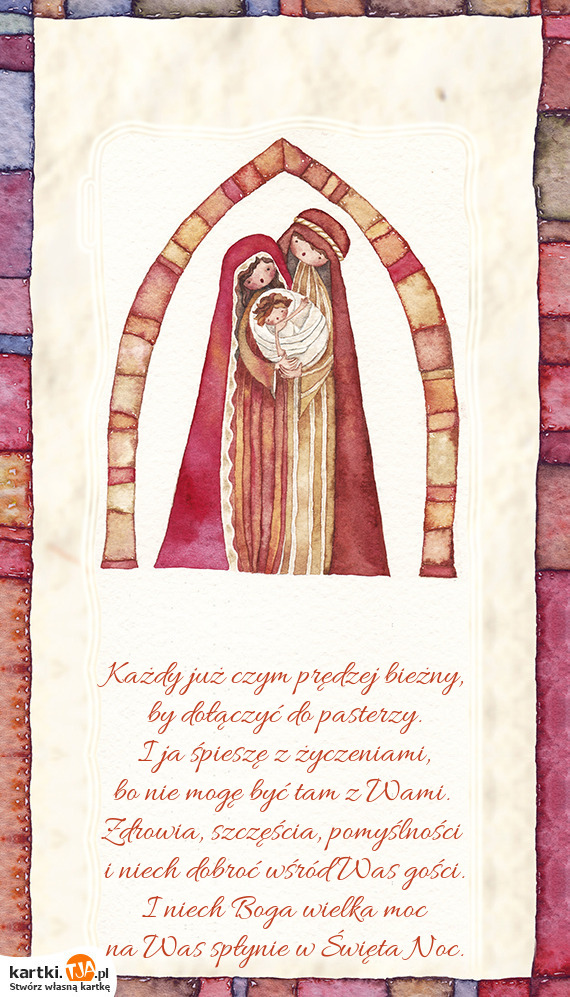 Każdy już czym prędzej bieżny,
by dołączyć do pasterzy.
I ja śpieszę z życzeniami,
bo nie mogę być tam z Wami.
Zdrowia, szczęścia, pomyślności
i niech dobroć wśród Was gości.
I niech Boga wielka moc
na Was spłynie w Święta Noc.
kartki.TJA.pl
Stwórz własną kartkę